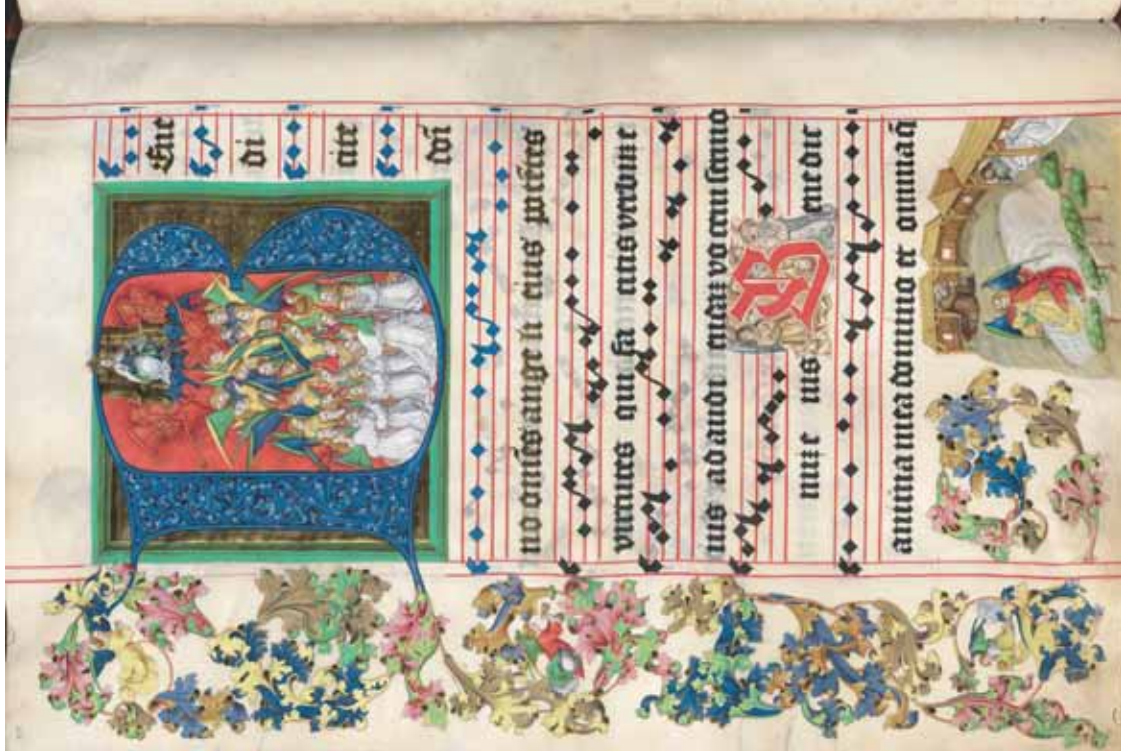 BEne
di
cite
dñi
no om̄es ange li eius potētes
virtutes qui fa citis verbuz e
ius ad audi endaz vocem sermo
nuz e ius B enedic
anima mea domino et omniaq̄